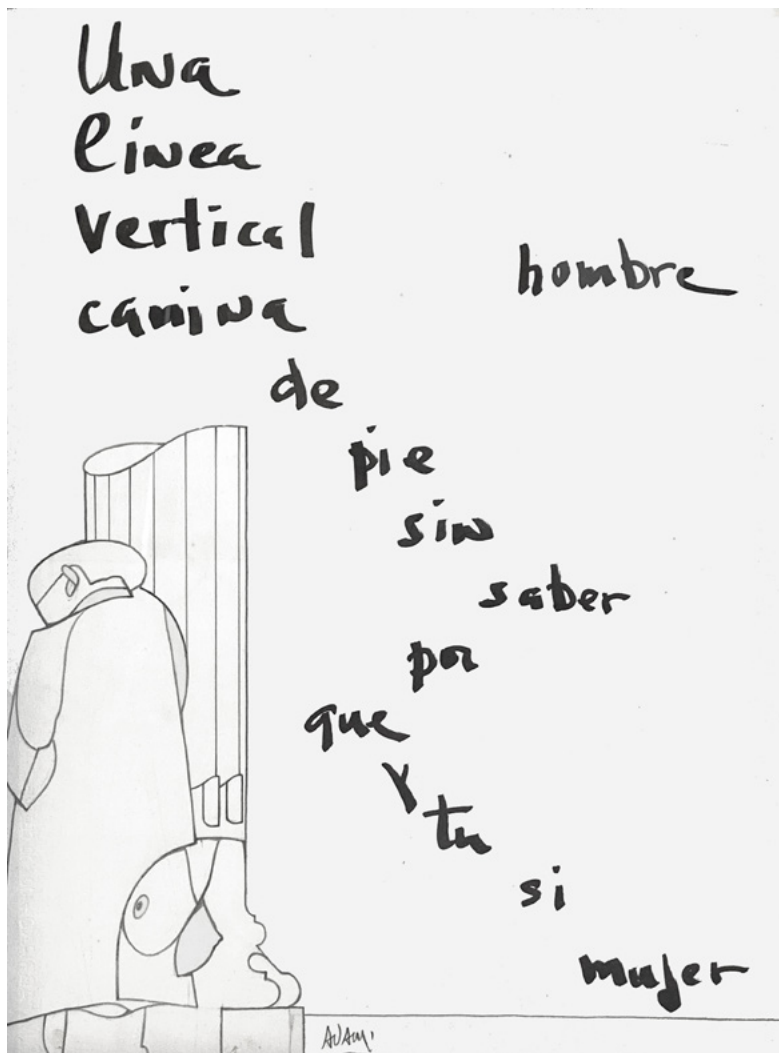 Una
linea
vertical
camina
hombre
de
pie
sin
saber
por
que
y
tu
si
mujer
ADAMI